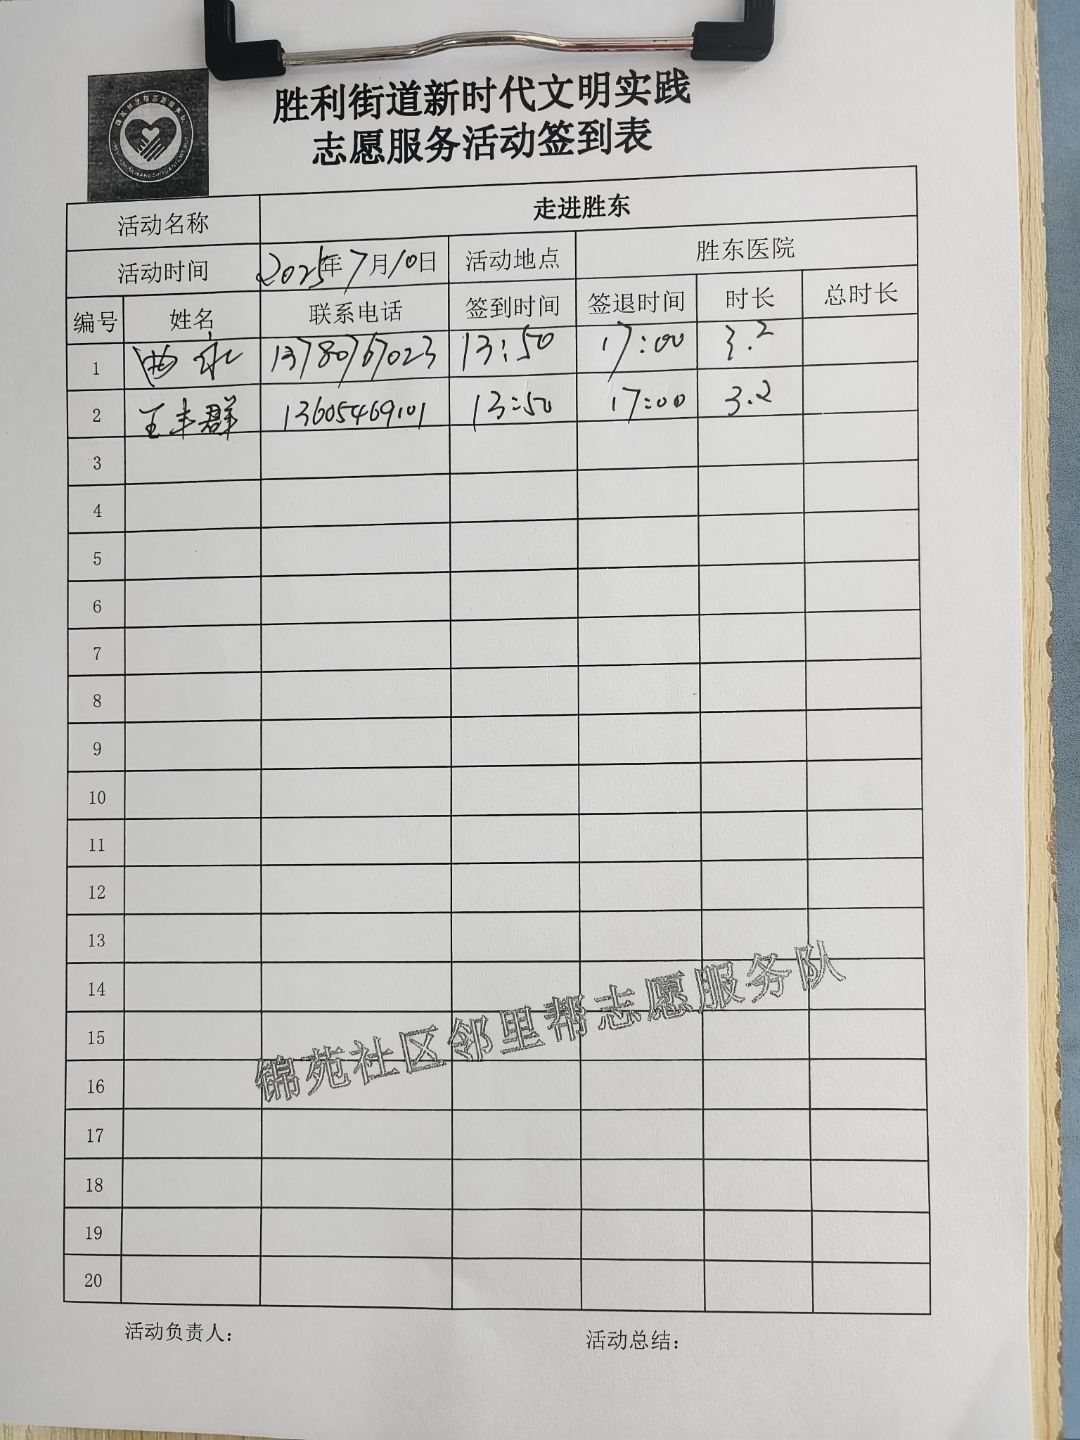 胜利街道新时代文明实践
志愿服务活动签到表
活动名称 走进胜东
活动时间 2025年7月10日 活动地点 胜东医院
编号 姓名 联系电话 签到时间 签退时间 时长 总时长
1 13780767023 13:50 17:00 3.2
2 王丰群 13605469101 13:50 17:00 3.2
3
4
5
6
7
8
9
10
11
12
13
14
15
16
17
18
19
20
锦苑社区邻里帮志愿服务队
活动负责人: 活动总结: